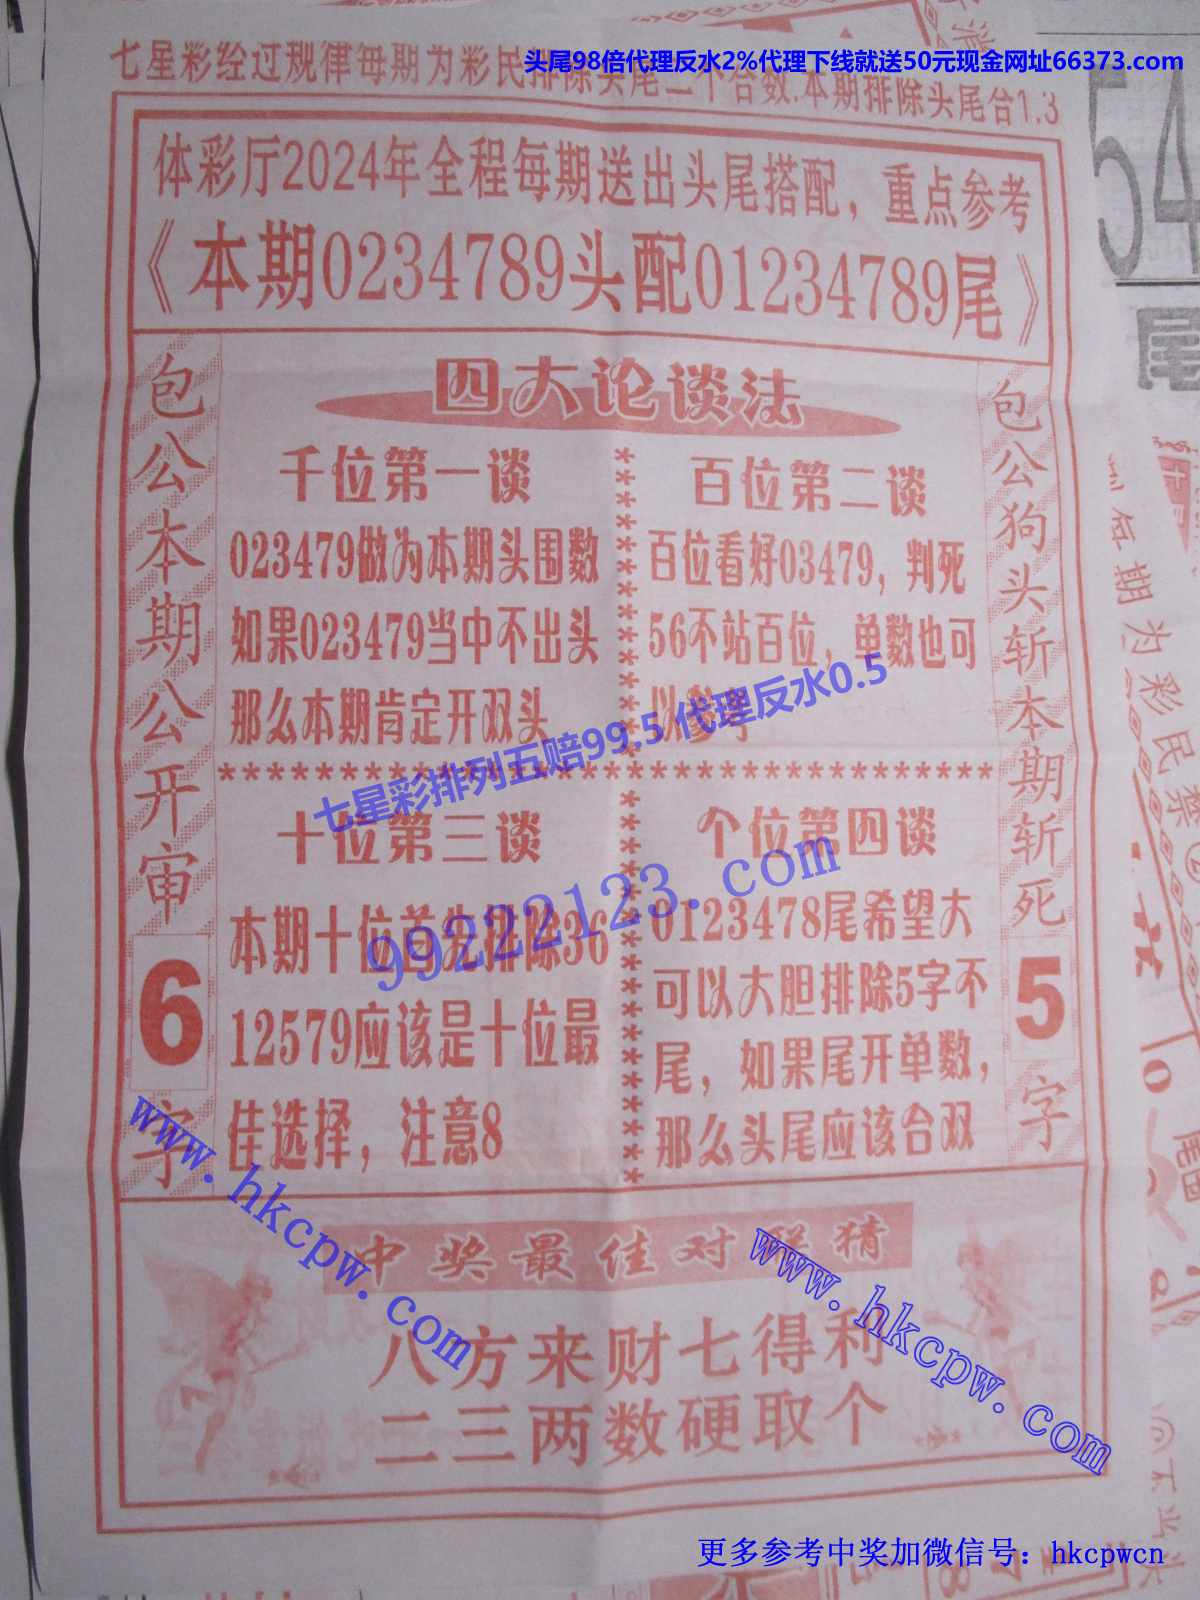 头尾98倍代理反水2%代理下线就送50元现金网址66373.com
七星彩经过规律每期为彩民排除头尾二个合数.本期排除头尾合1.3
体彩厅2024年全程每期送出头尾搭配，重点参考
《本期0234789头配01234789尾》
包公本期公开审6字
四大论谈法
千位第一谈
023479做为本期头围数
如果023479当中不出头
那么本期肯定开双头
百位第二谈
百位看好03479，判死
56不站百位，单数也可
以参考
七星彩排列五赔99.5 代理反水0.5
99222123.com
十位第三谈
本期十位首先排除36
12579应该是十位最
佳选择，注意8
个位第四谈
0123478尾希望大
可以大胆排除5字不
尾，如果尾开单数，
那么头尾应该合双
包公狗头斩本期斩死5字
中奖最佳对联猜
八方来财七得利
二三两数硬取个
www.hkcpw.com
www.hkcpw.com
更多参考中奖加微信号：hkcpwcn
54
尾
每期为彩民